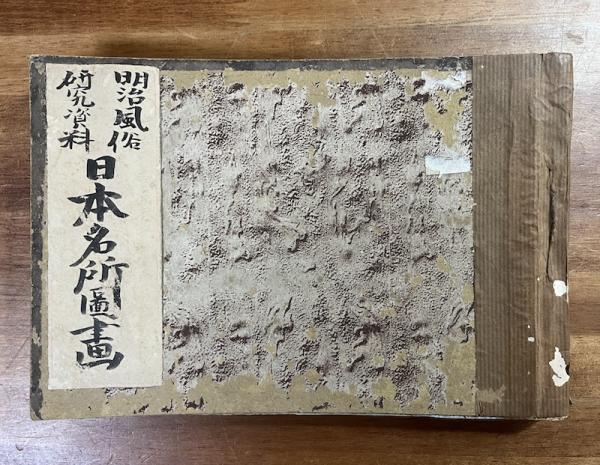 明治風俗
研究資料
日本名所圖畫